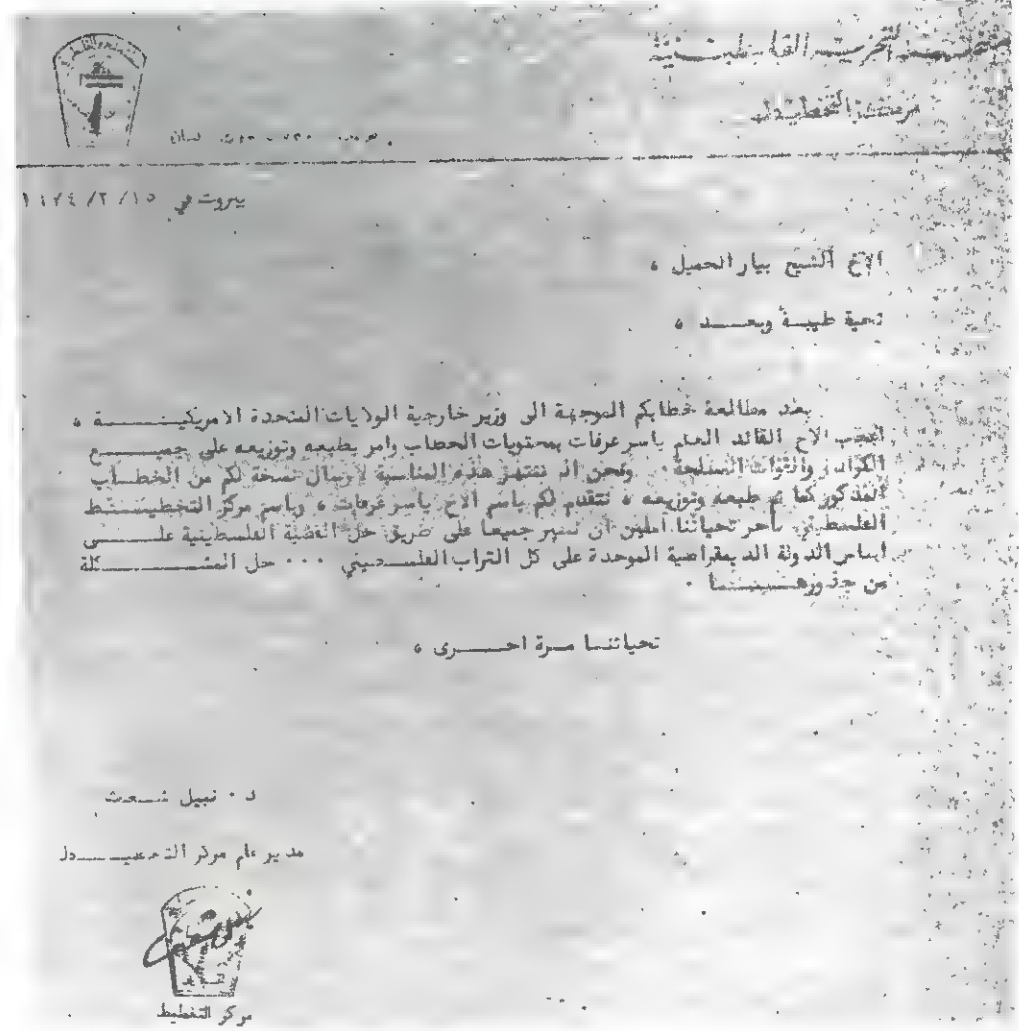 منظمة التحرير الفلسطينية
مركز التخطيط
بيروت في ١٥/ ٢/ ١٩٧٤
الاخ الشيخ بيار الجميل ،
تحية طيبة وبعد ،
بعد مطالعة خطابكم الموجهة الى وزير خارجية الولايات المتحدة الامريكية ،
اعجب الاخ القائد العام ياسر عرفات بمحتويات الخطاب وامر بطبعه وتوزيعه على جميع
الكوادر والقوات المسلحة . ونحن اذ ننتهز هذه المناسبة لارسال نسخة لكم من الخطاب
المذكور كما تم طبعه وتوزيعه ، نتقدم لكم باسم الاخ ياسر عرفات ، وباسم مركز التخطيط
الفلسطيني بأحر تحياتنا املين ان نسير جميعا على طريق حل القضية الفلسطينية على
اساس الدولة الديمقراطية الموحدة على كل التراب الفلسطيني ... حل المشكلة
من جذورها .
تحياتنا مرة اخرى ،
د . نبيل شعث
مدير عام مركز التخطيط
مركز التخطيط